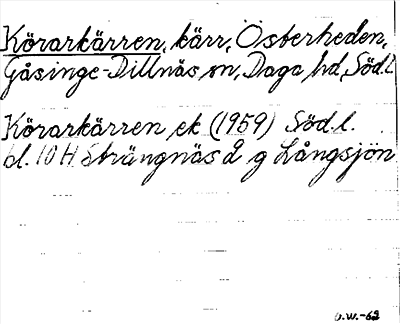 Körarkärren, kärr, Österheden,
Gåsinge-Dillnäs sn, Daga hd, Södl.
Körarkärren ek (1959) Söd.l.
bl. 10 H Strängnäs 2 g Långsjön
O.W.-62